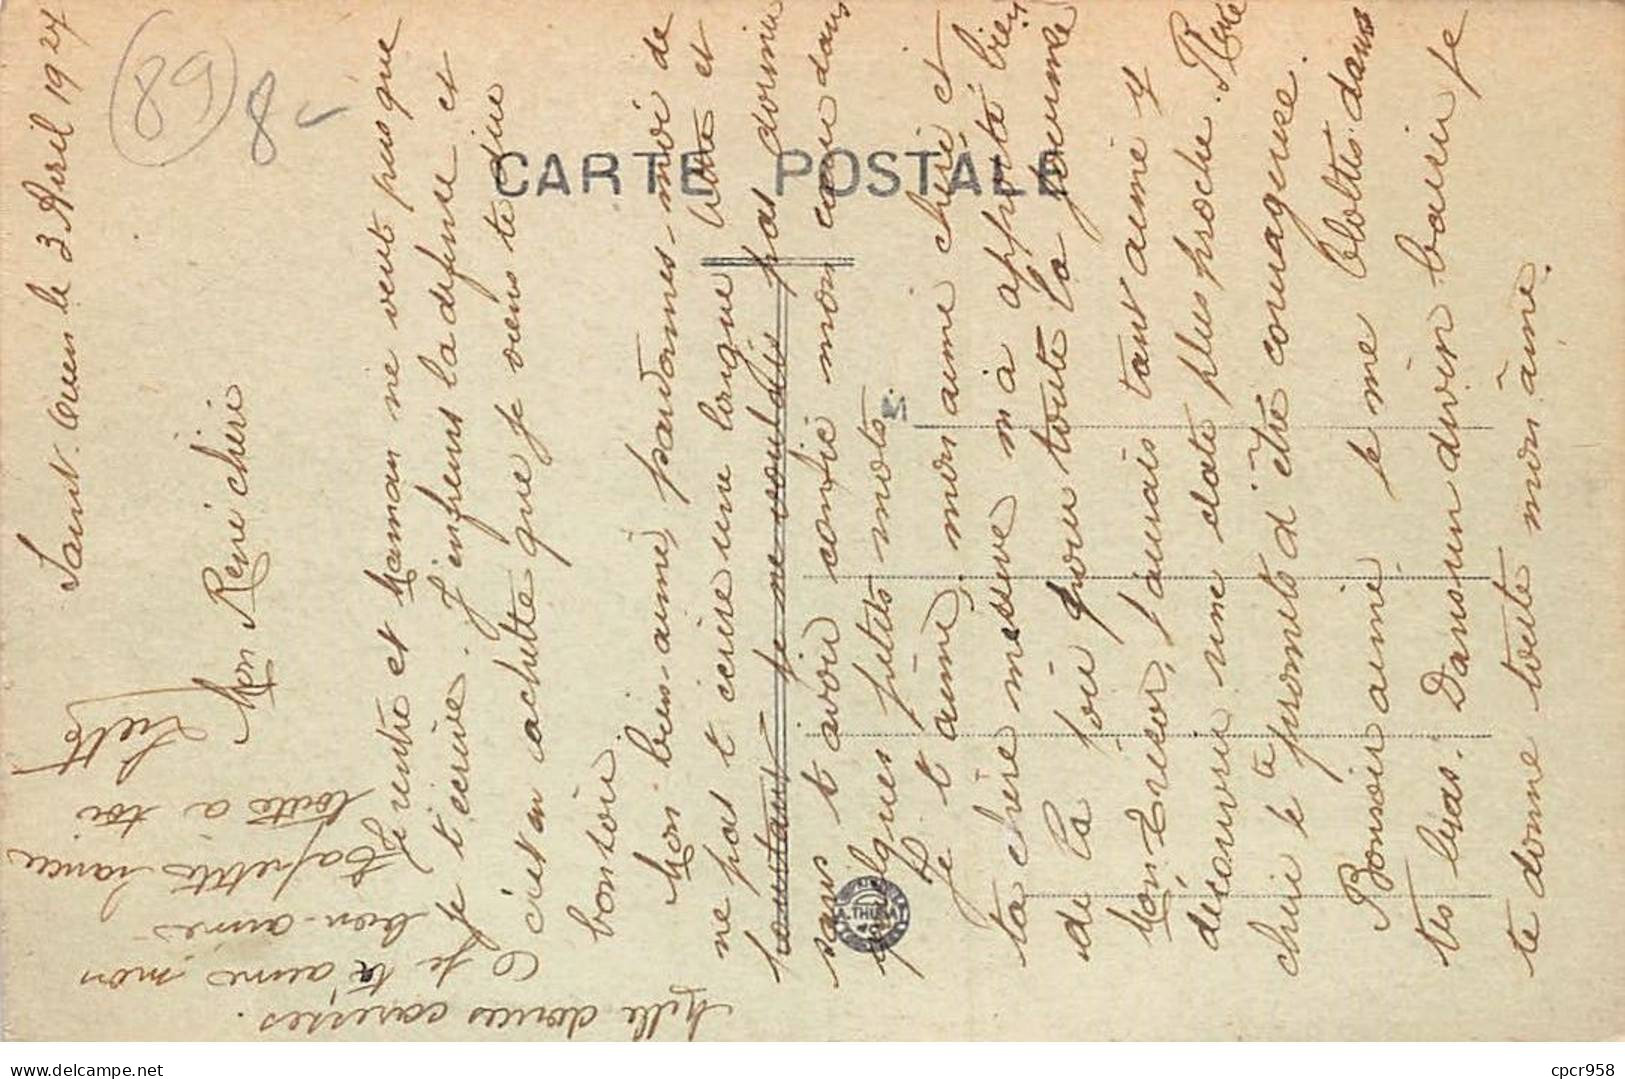 Saint-Ouen le 3 Avril 1927
Mon René chéri
Je rentre et Maman ne veut pas que
je t'écrive. J'enfreins la défense et
c'est en cachette que je viens te dire
bonsoir.
Mon bien-aimé, pardonnes-moi de
ne pas t'écrire une longue lettre et
pourtant je ne voulais pas dormir
sans t'avoir confié mon cœur dans
quelques petits mots.
Je t'aime, mon aimé chéri et
ta chère m'a apporté bien
de la joie pour toute la journée
Mon Trésor, j'aurais tant aimé y
découvrir une date plus proche. René
chéri je te promets d'être courageuse.
Bonsoir aimé je me blottis dans
tes bras. Dans un divin baiser je
te donne toute mon âme.
Mille douces caresses.
O je t'aime mon
bien-aimé
Ta petite fiancée
toute à toi
CARTE POSTALE
A. THUSAT
89
8-
delcampe.net
cpcr958